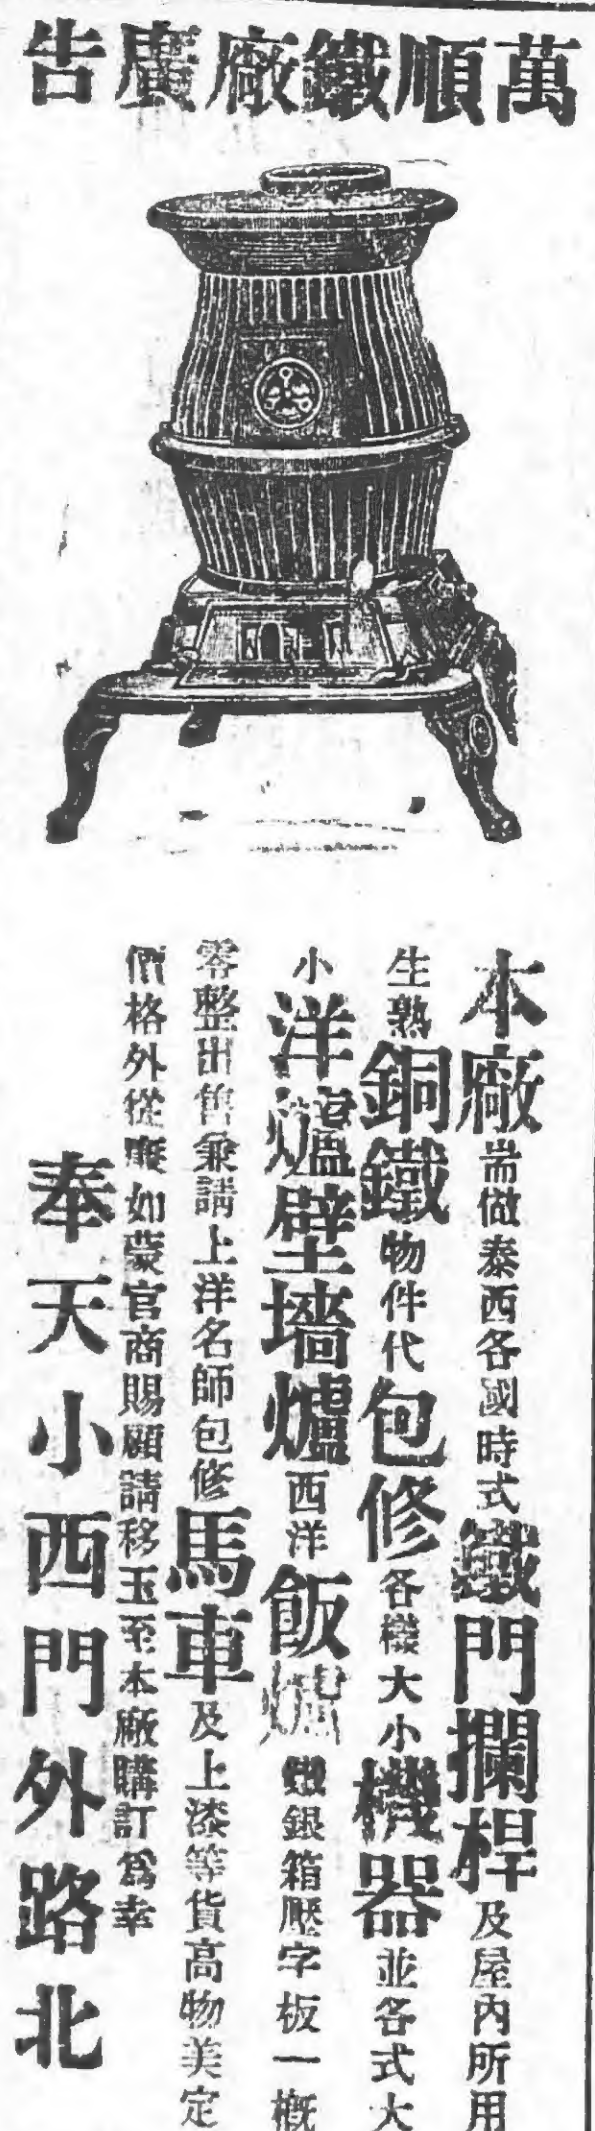 萬順鐵廠廣告
本廠耑做泰西各國時式鐵門攔桿及屋內所用
生熟銅鐵物件代包修各樣大小機器並各式大
小洋爐壁墻爐西洋飯爐銀箱壓字板一概
零整出售兼請上洋名師包修馬車及上漆等貨高物美定
價格外從廉如蒙官商賜顧請移玉至本廠購訂爲幸
奉天小西門外路北